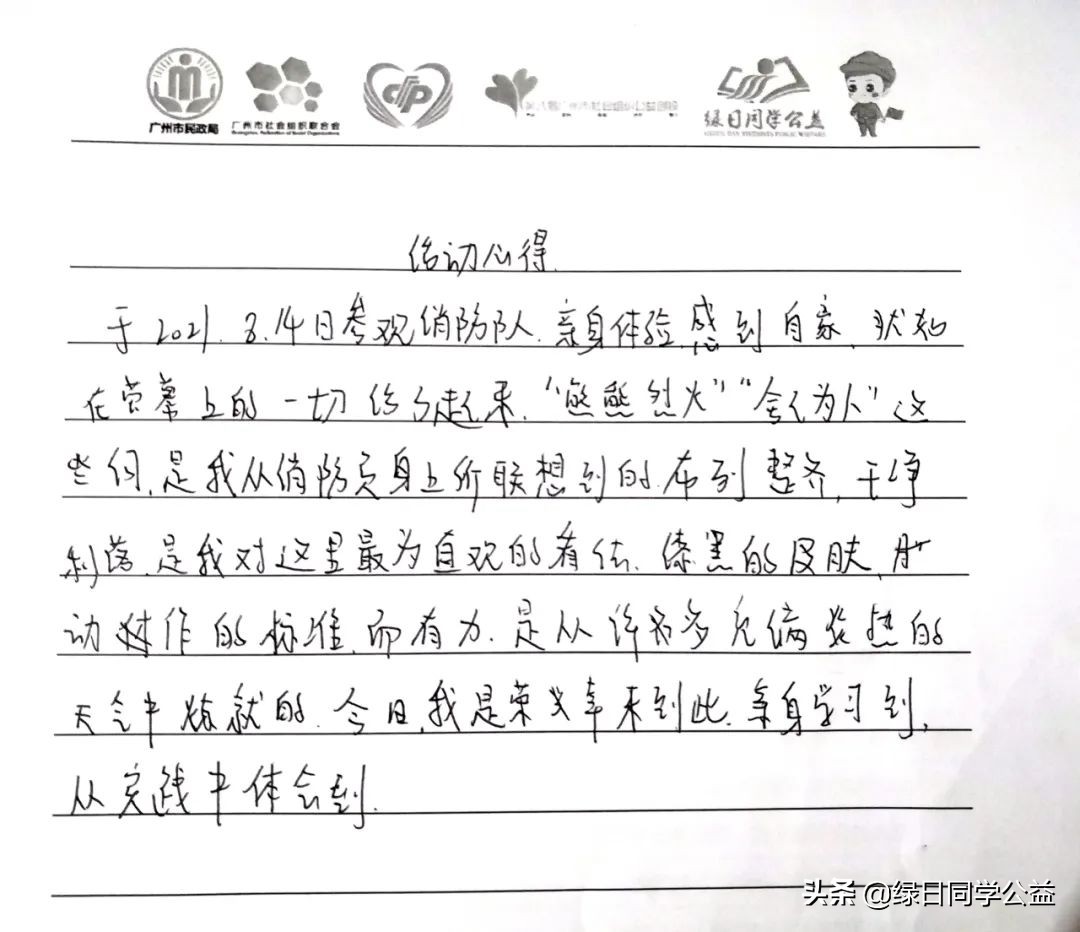 广州市民政局 广州市社会组织联合会 绿日同学公益
活动心得
于2021.8.14日参观消防队.亲身体验,感到自豪、
在荧幕上的一切 起来,“熊熊烈火”“舍己为人”这
些词,是我从消防员身上所联想到的.布列整齐,干净
利落,是我对这里最为直观的看法.漆黑的皮肤,
动作的标准而有力.是从许多多 炎热的
天气中炼就的.今日,我是荣幸来到此.亲身学习到,
从实践中体会到.
头条 @绿日同学公益